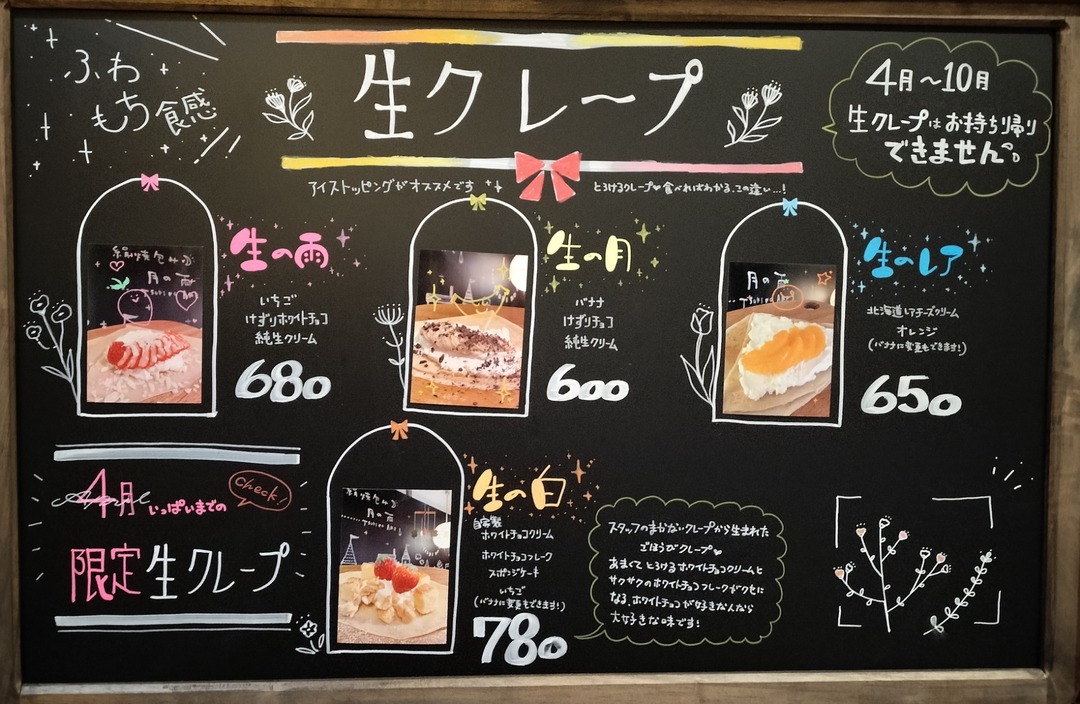 ふわ
もち食感
生クレープ
4月～10月
生クレープはお持ち帰り
できません。
アイストッピングがオススメです
とろけるクレープ♥食べればわかる、この違い…!
生の雨
いちご
けずりホワイトチョコ
純生クリーム
680
生の月
バナナ
けずりチョコ
純生クリーム
600
月の雨
月の雨
生のレア
北海道レアチーズクリーム
オレンジ
(バナナに変更もできます!)
650
April
4月いっぱいまでの
Check!
限定生クレープ
月の雨
生の白
自家製
ホワイトチョコクリーム
ホワイトチョコフレーク
スポンジケーキ
いちご
(バナナに変更もできます!)
780
スタッフのまかないクレープから生まれた
ごほうびクレープ♥
あまくてとろけるホワイトチョコクリームと
サクサクのホワイトチョコフレークがクセに
なる、ホワイトチョコが好きな人なら
大好きな味です!